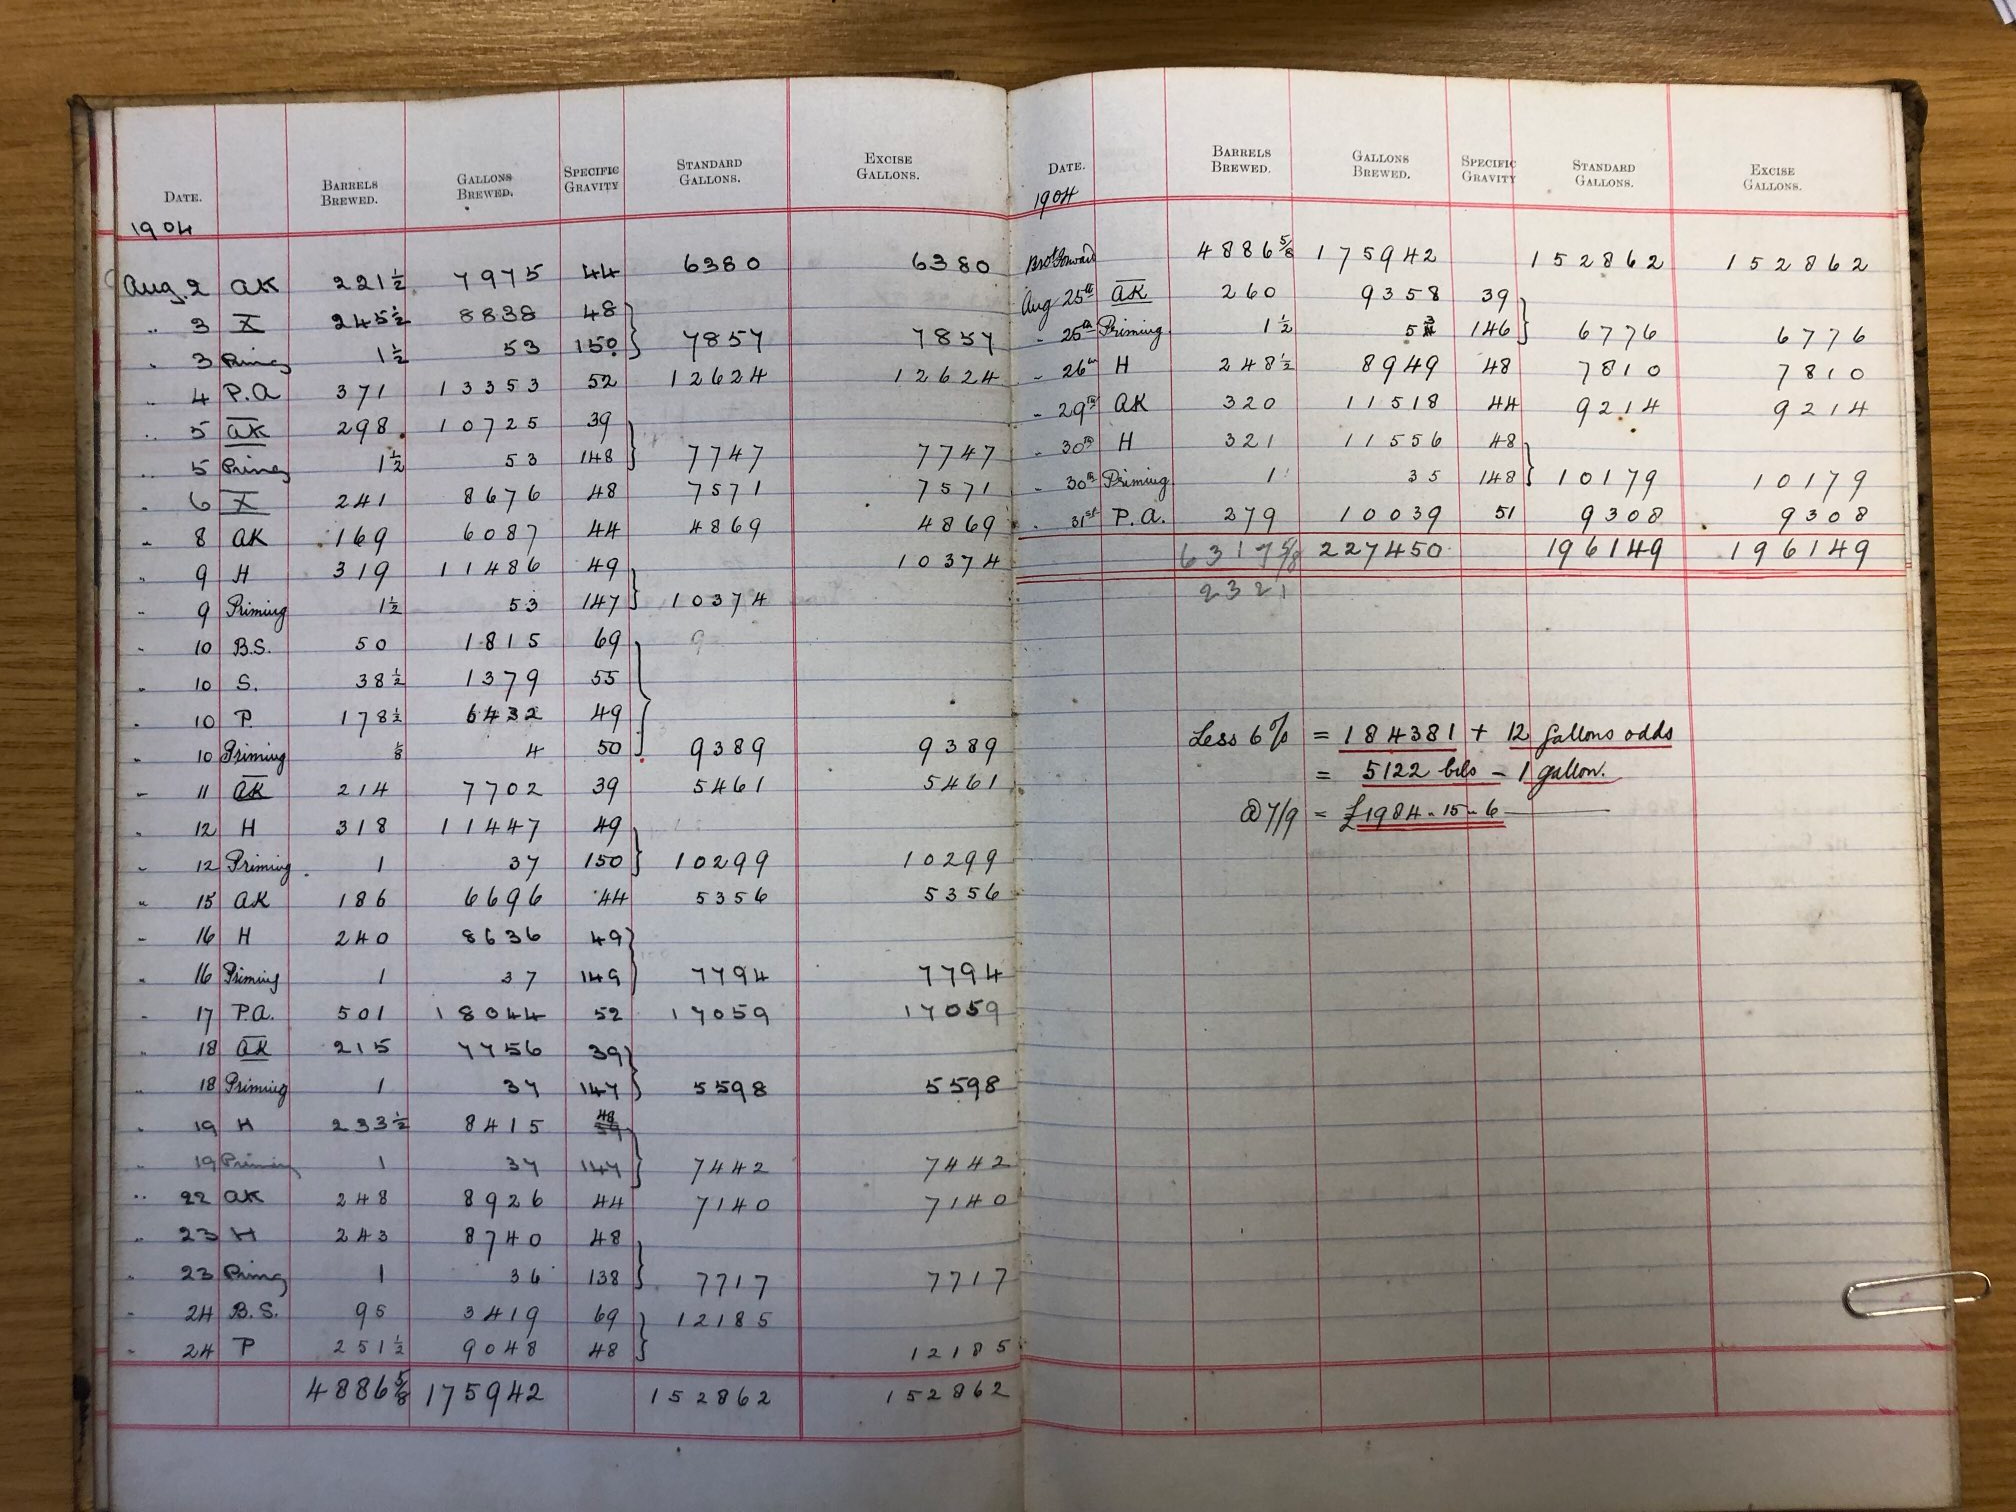 DATE. BARRELS BREWED. GALLONS BREWED. SPECIFIC GRAVITY STANDARD GALLONS. EXCISE GALLONS.
1904
Aug. 2 AK 221½ 7975 44 6380 6380
" 3 X 245½ 8838 48
" 3 Priming 1½ 53 150 7857 7857
" 4 P.A 371 13353 52 12624 12624
" 5 AK 298 10725 39
" 5 Priming 1½ 53 148 7747 7747
" 6 X 241 8676 48 7571 7571
" 8 AK 169 6087 44 4869 4869
" 9 H 319 11486 49 10374
" 9 Priming 1½ 53 147 10374
" 10 B.S. 50 1815 69 9
" 10 S. 38½ 1379 55
" 10 P. 178½ 6432 49
" 10 Priming ⅛ 4 50 9389 9389
" 11 AK 214 7702 39 5461 5461
" 12 H 318 11447 49
" 12 Priming. 1 37 150 10299 10299
" 15 AK 186 6696 44 5356 5356
" 16 H 240 8636 49
" 16 Priming 1 37 149 7794 7794
" 17 P.A. 501 18044 52 17059 17059
" 18 AK 215 7756 39
" 18 Priming 1 37 147 5598 5598
" 19 H 233½ 8415 48
" 19 Priming 1 37 147 7442 7442
" 22 AK 248 8926 44 7140 7140
" 23 H 243 8740 48
" 23 Priming 1 36 138 7717 7717
" 24 B.S. 95 3419 69 12185
" 24 P 251½ 9048 48 12185
4886⅝ 175942 152862 152862
DATE. BARRELS BREWED. GALLONS BREWED. SPECIFIC GRAVITY STANDARD GALLONS. EXCISE GALLONS.
1904
Brot Forward 4886⅝ 175942 152862 152862
Aug 25th AK 260 9358 39
" 25th Priming 1½ 53 146 6776 6776
" 26th H 248½ 8949 48 7810 7810
" 29th AK 320 11518 44 9214 9214
" 30th H 321 11556 48
" 30th Priming 1 35 148 10179 10179
" 31st P.A. 279 10039 51 9308 9308
6317⅝ 227450 196149 196149
2321
Less 6% = 184381 + 12 gallons odds
= 5122 bls - 1 gallon.
@ 7/9 = £1984 - 15 - 6